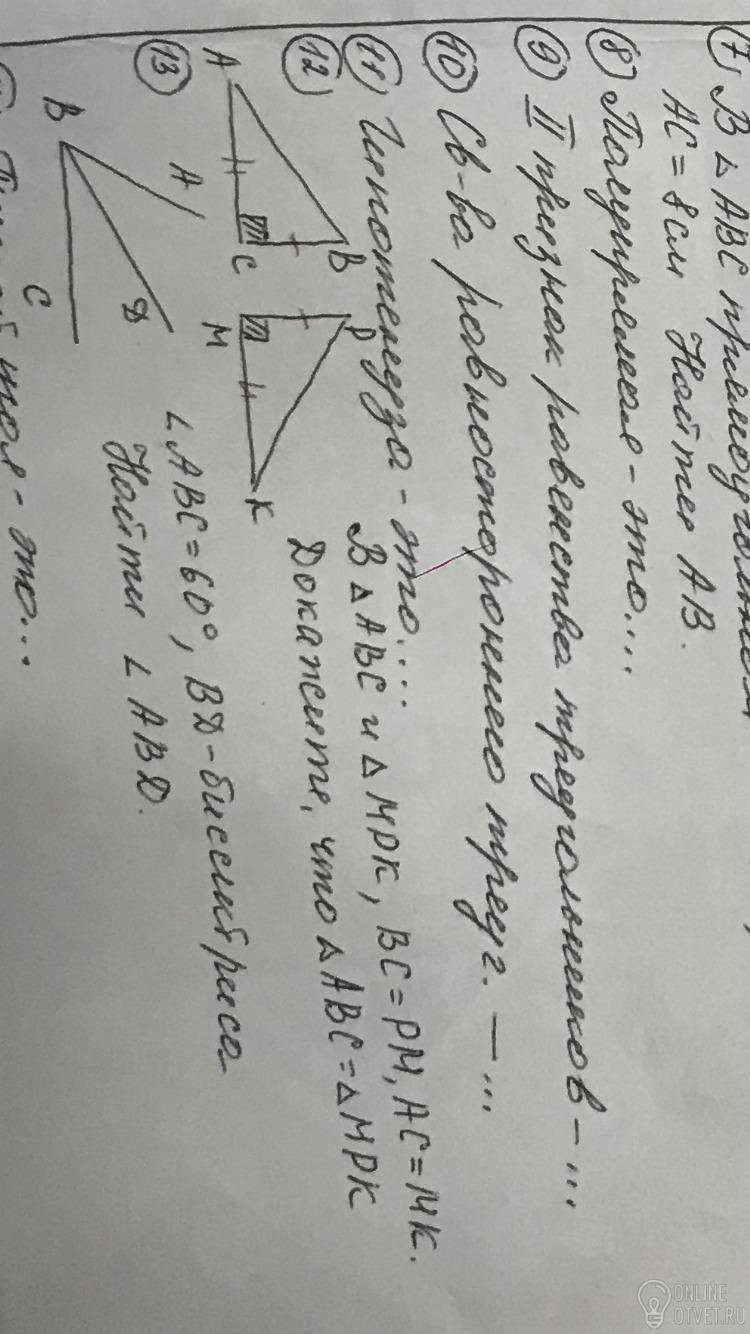 7) В △ ABC
AC = 8см Найти AB.
8) Полупрямая - это....
9) II признак равенства треугольников - ...
10) Св-ва равностороннего треуг. - ...
11) Гипотенуза - это....
12) В △ ABC и △ MPK, BC = PM, AC = MK.
Докажите, что △ ABC = △ MPK
A B C M P K
13) ∠ABC = 60°, BD - биссектриса
Найти ∠ ABD.
A B C D
- это...
ONLINE
OTVET.RU